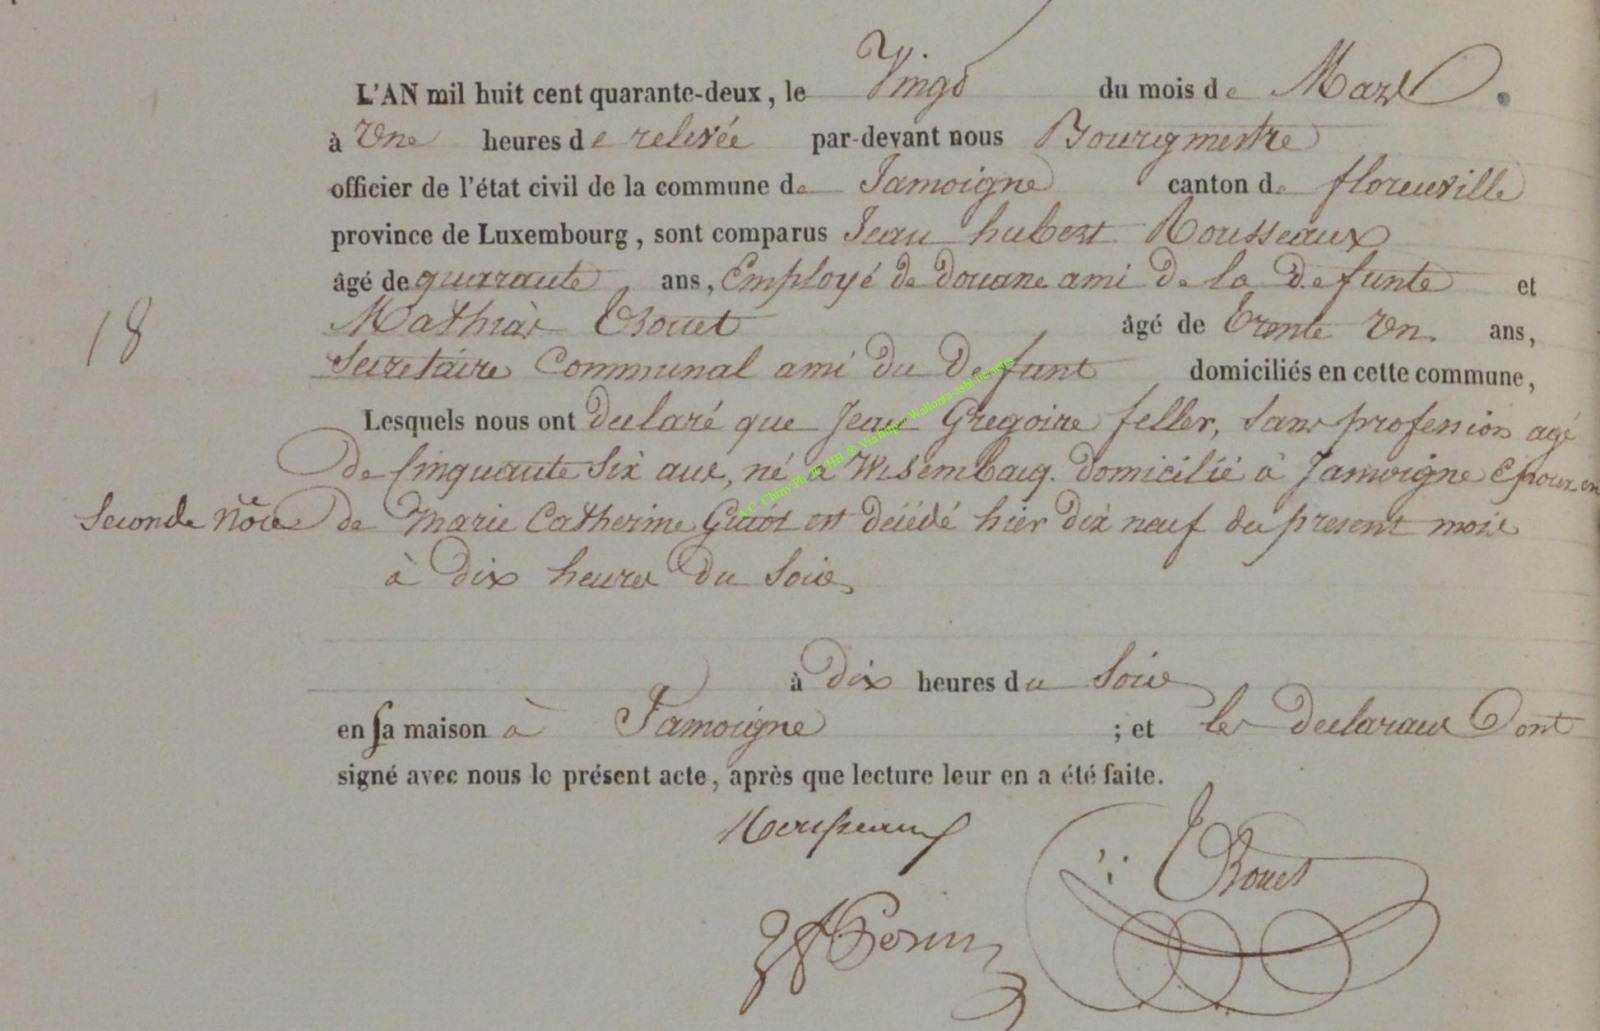 L'AN mil huit cent quarante-deux, le Vingt du mois de Mars.
à Une heures de relevée par-devant nous Bourgmestre
officier de l'état civil de la commune de Jamoigne canton de florenville
province de Luxembourg, sont comparus Jean hubert Rousseaux
âgé de quarante ans, Employé de douane ami de la defunte et
18
Mathias Thouet âgé de trente Un ans,
Secretaire Communal ami du Defunt domiciliés en cette commune,
Lesquels nous ont declaré que Jean Gregoire feller, sans profession agé
de Cinquante Six ans, né à Wisembacq. domicilié à Jamoigne Epoux en
Seconde Nôce de Marie Catherine Guiot est décédé hier dix neuf du present mois
à dix heures du Soir
à dix heures du Soir
en sa maison à Jamoigne ; et les declarans ont
signé avec nous le présent acte, après que lecture leur en a été faite.
Rousseaux
Thouet